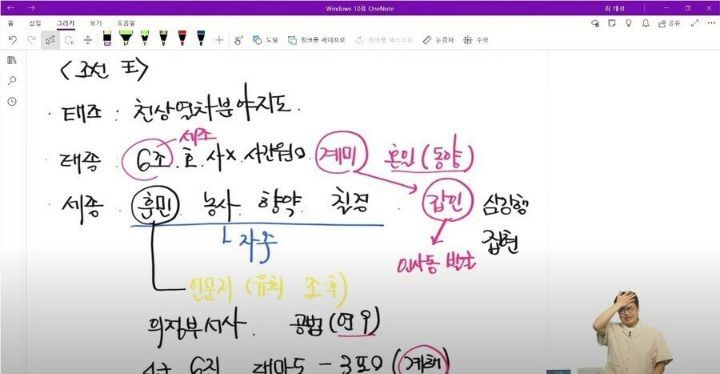 Windows 10용 OneNote
최 태성
홈 삽입 그리기 보기 도움말
도형 잉크를 셰이프로 잉크를 텍스트로 눈금자 수학
공유
<조선 王>
· 태조 : 천상열차분야지도
세조
· 태종 6조. 호. 사X 사간원O 계미 혼일 (동양)
· 세종 . 훈민 농사 향약 칠정 갑인 삼강행
집현
자주 인사동 발굴
언문지 (유희 조후)
의정부서사 공법 (연9)
4군 6진 대마도 - 3포O (계해)